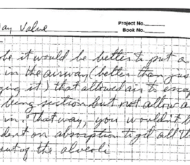 way Valve
Project No.
Book No.
be it would be better to put a
in the airway (better than just
ing it) that allowed air to escape
being suction but not allow a
in that way, you wouldn't b
dent on absorption to get all th
enting the alveoli